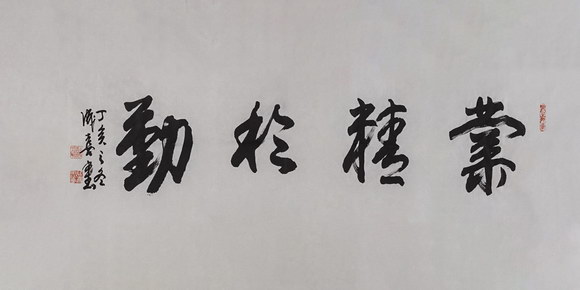 業精於勤
丁亥之冬
喜書